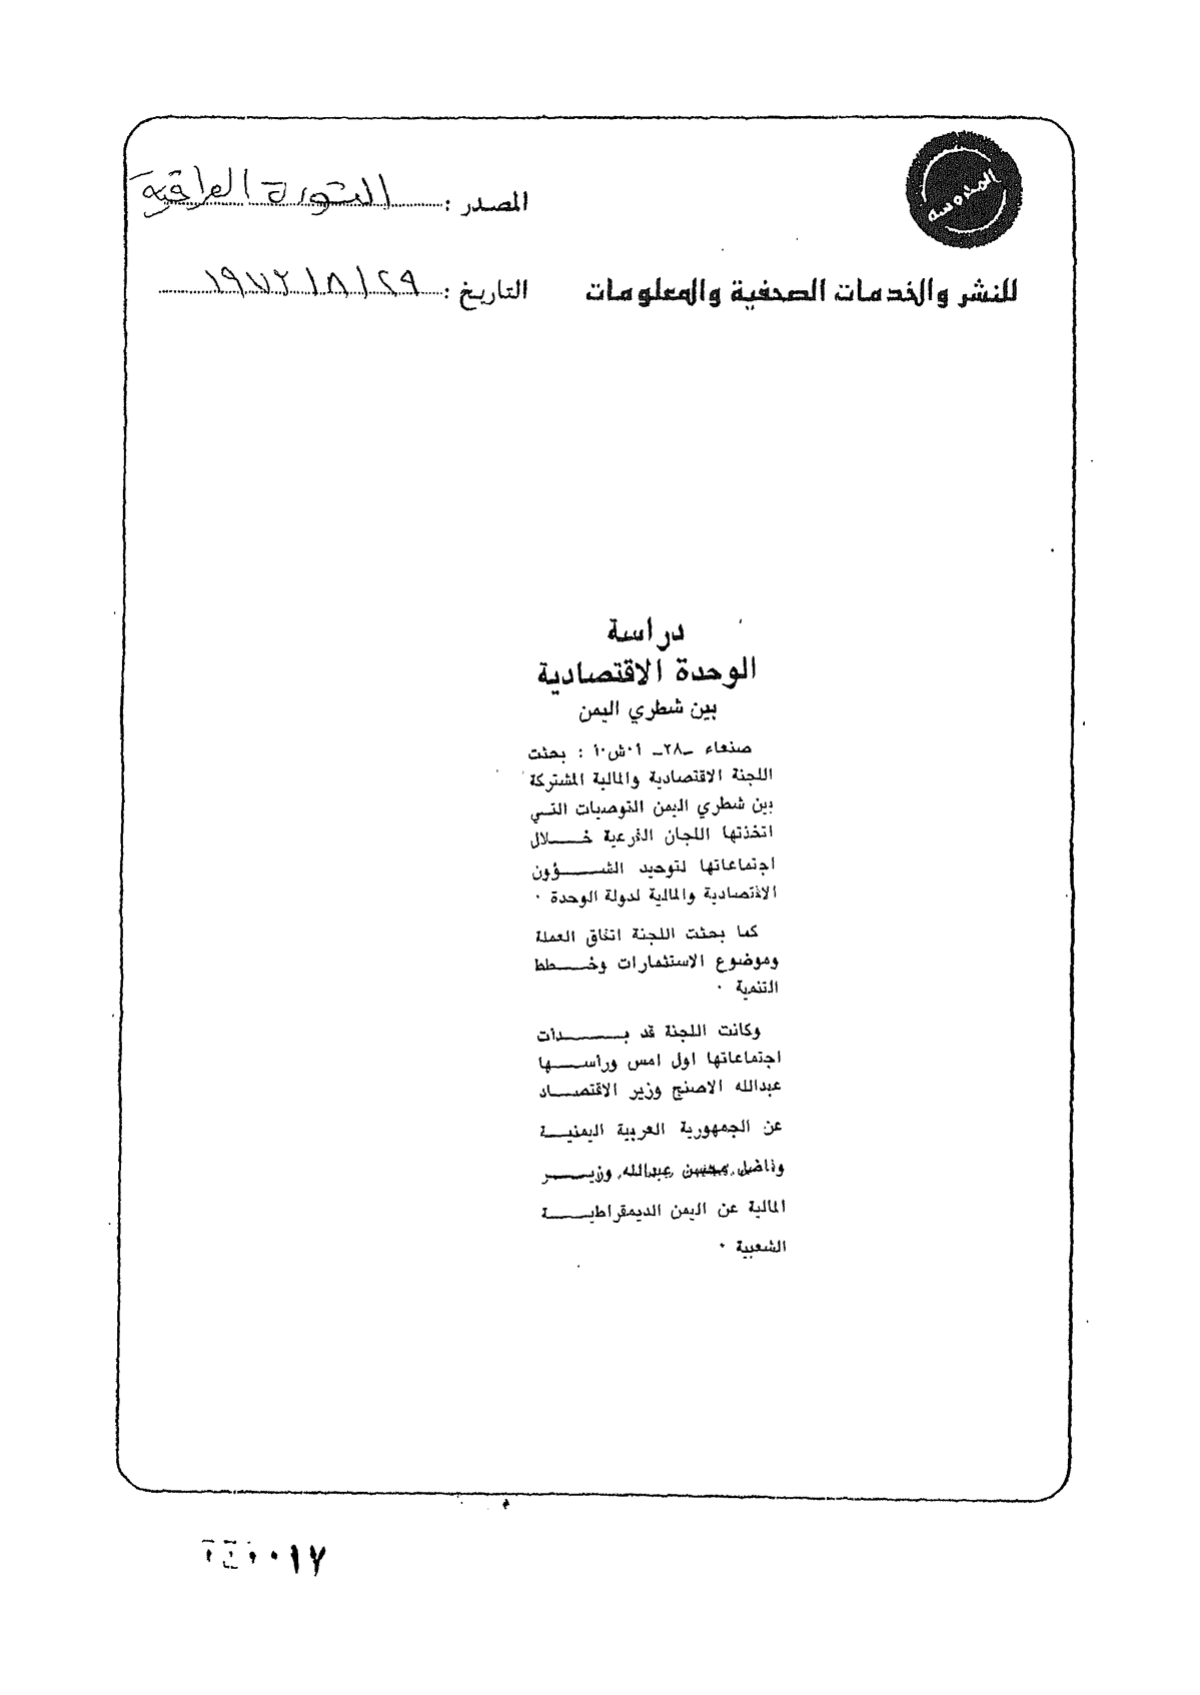 المحروسة
المصدر : الثورة العراقية
للنشر والخدمات الصحفية والمعلومات
التاريخ : ٢٩/٨/١٩٧٢
دراسة
الوحدة الاقتصادية
بين شطري اليمن
صنعاء -٢٨- ا٠ش٠ا : بحثت
اللجنة الاقتصادية والمالية المشتركة
بين شطري اليمن التوصيات التي
اتخذتها اللجان الفرعية خلال
اجتماعاتها لتوحيد الشؤون
الاقتصادية والمالية لدولة الوحدة ٠
كما بحثت اللجنة اتفاق العملة
وموضوع الاستثمارات وخطط
التنمية ٠
وكانت اللجنة قد بدأت
اجتماعاتها اول امس ورأسها
عبدالله الاصنج وزير الاقتصاد
عن الجمهورية العربية اليمنية
وفاضل محسن عبدالله وزير
المالية عن اليمن الديمقراطية
الشعبية ٠
٠٠١٧